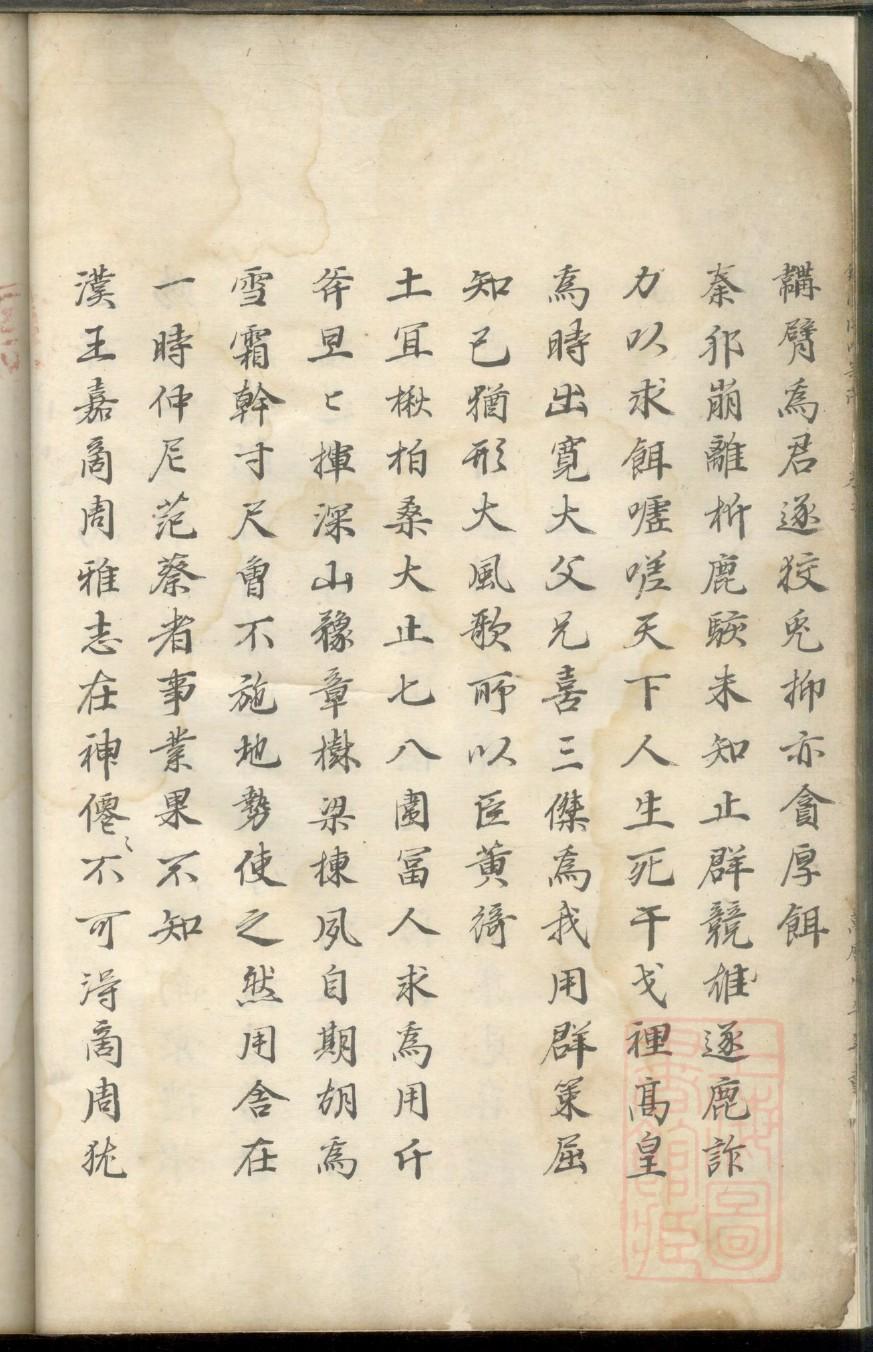 韝臂為君逐狡兎抑亦貪厚餌
秦邦崩離析鹿駭未知止群競雄逐鹿詐
力以求餌嘘嗟天下人生死干戈裡高皇
為時出寛大父兄喜三傑為我用群策屈
知己猶形大風歌所以臣黄綺
土宜楸柏桑大止七八圍冨人求為用斤
斧旦〻揮深山豫章樹梁棟夙自期胡為
雪霜幹寸尺曾不施地勢使之然用舎在
一時仲尼范蔡者事業果不知
漢王嘉商周雅志在神僊〻不可得商周犹